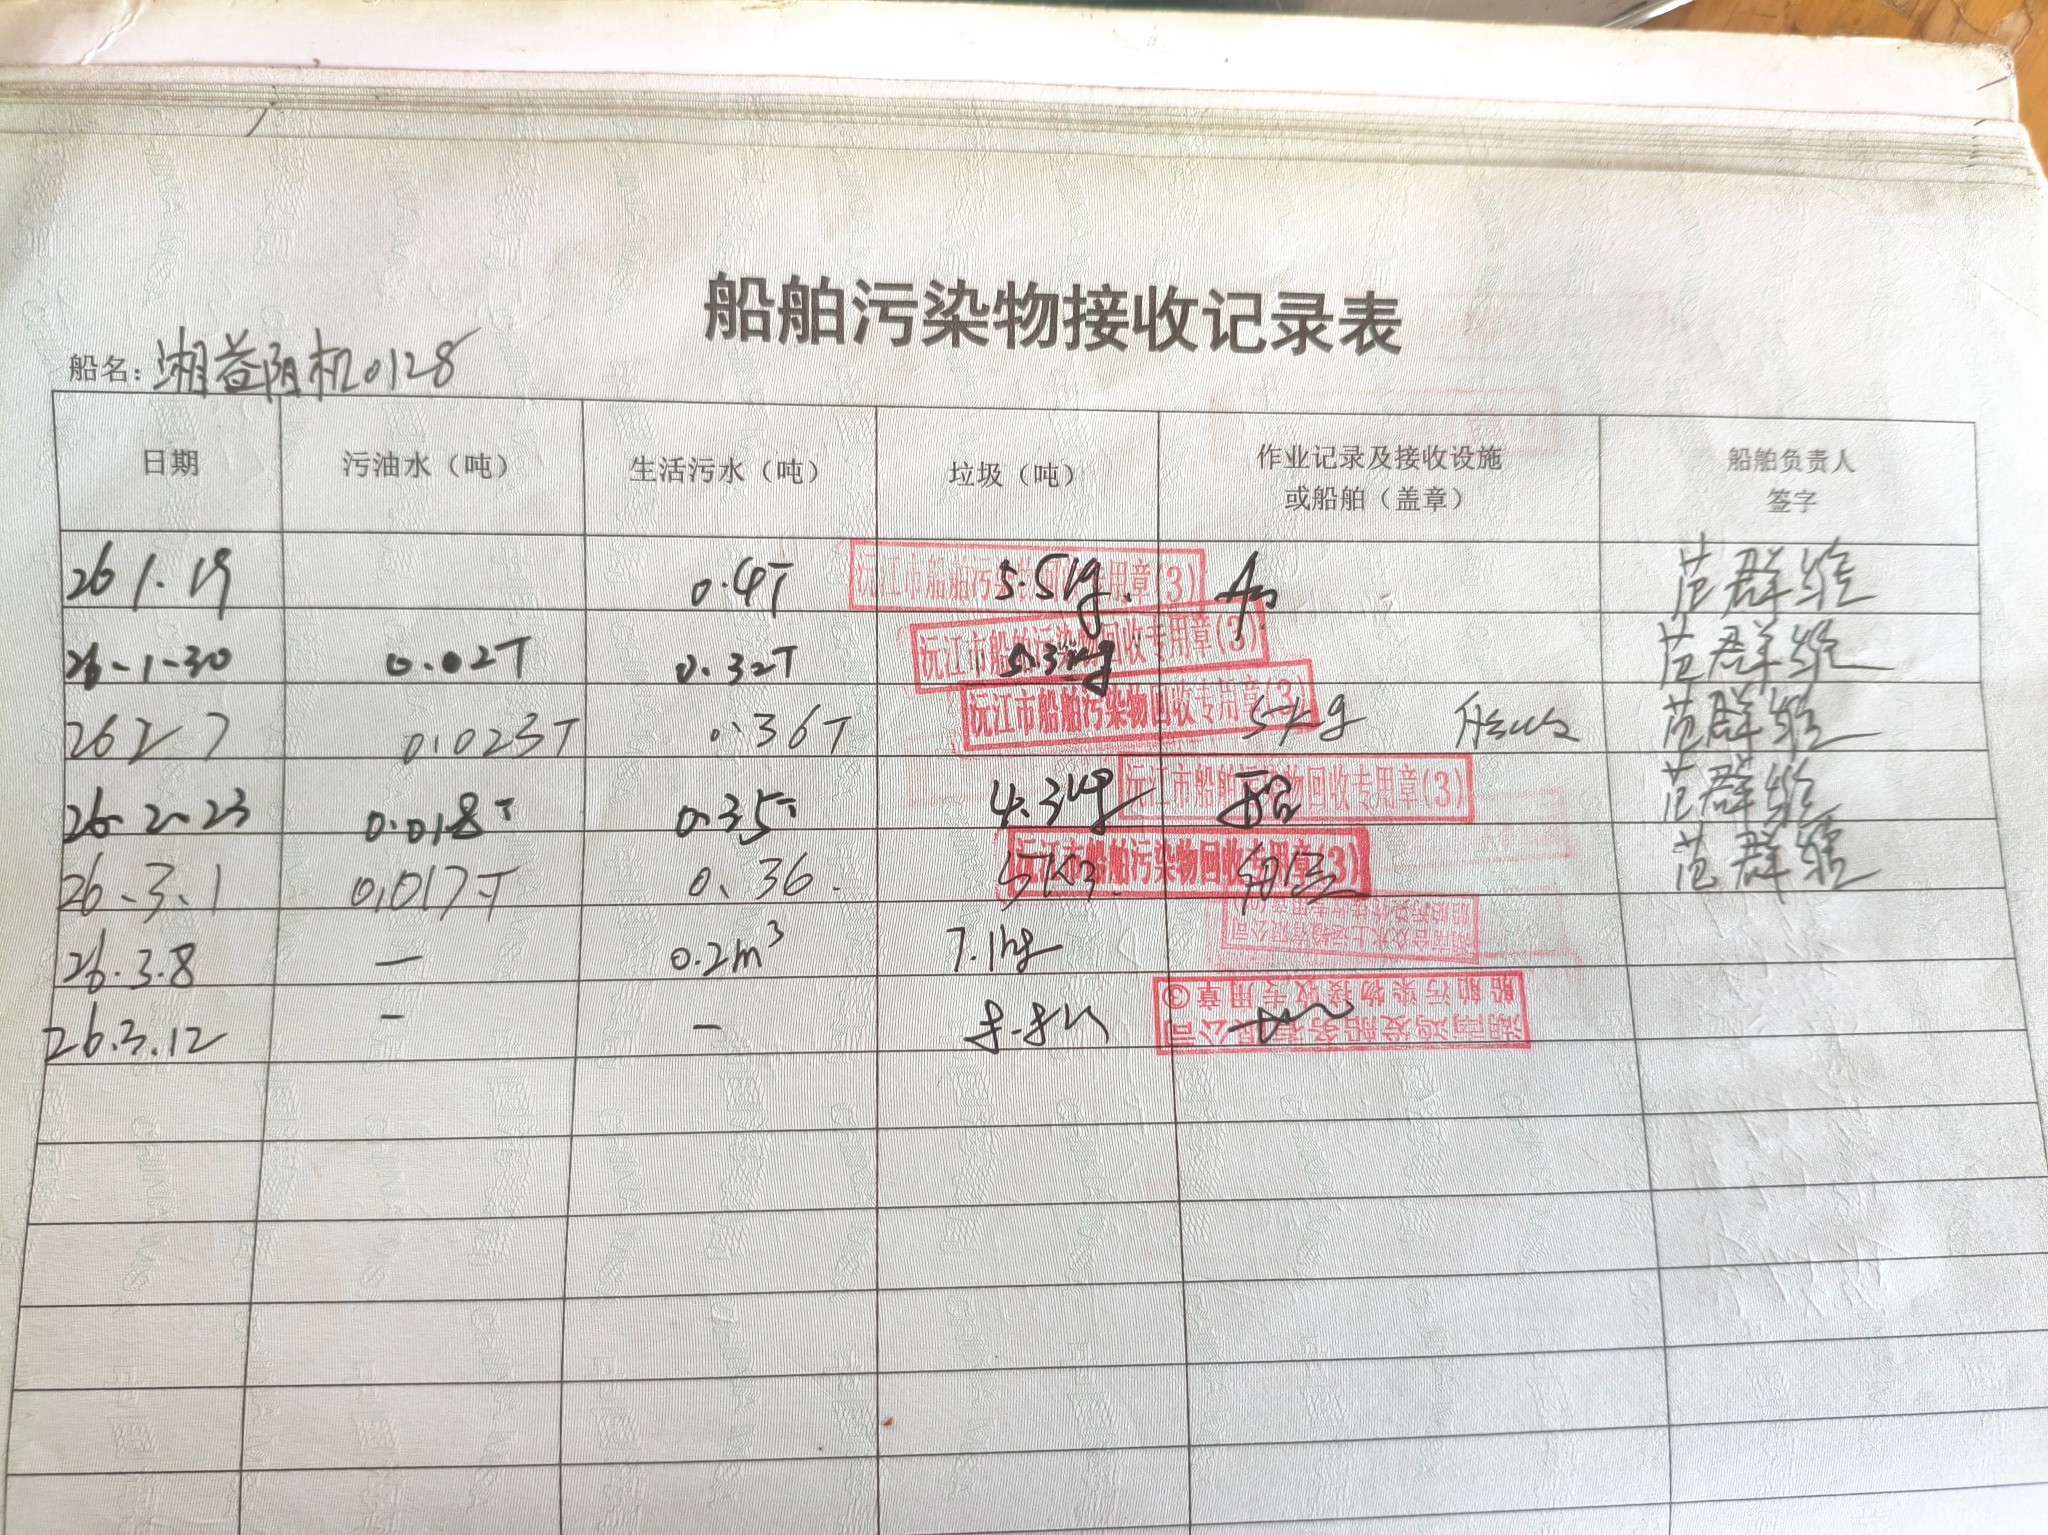 船舶污染物接收记录表
船名：湘益阳机0128
日期 污油水（吨） 生活污水（吨） 垃圾（吨） 作业记录及接收设施或船舶（盖章） 船舶负责人签字
26 1.19 0.4T 5.5kg 沅江市船舶污染物回收专用章(3) 范群
26-1-30 0.02T 0.32T 5.3kg 沅江市船舶污染物回收专用章(3) 范群
26 2 7 0.023T 0.36T 沅江市船舶污染物回收专用章(3) 5kg 范群
26-2-23 0.018T 0.35T 4.3kg 沅江市船舶污染物回收专用章(3) 范群
26.3.1 0.017T 0.36. 5Kg. 沅江市船舶污染物回收专用章(3) 范群
26.3.8 — 0.2m³ 7.1kg
26.3.12 — — 8.8 湖南鸿发船务有限公司 船舶污染物接收专用章③